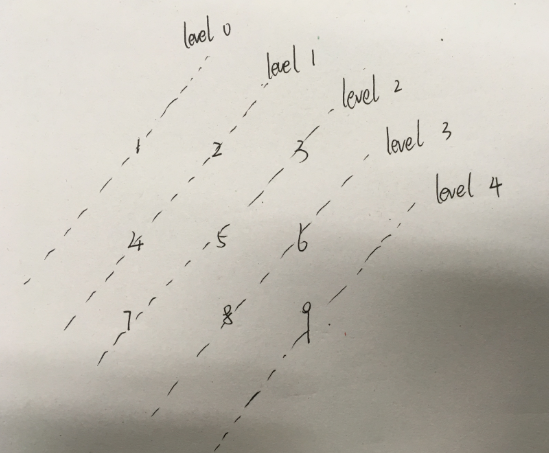 level 0
level 1
level 2
level 3
level 4
1 2 3
4 5 6
7 8 9